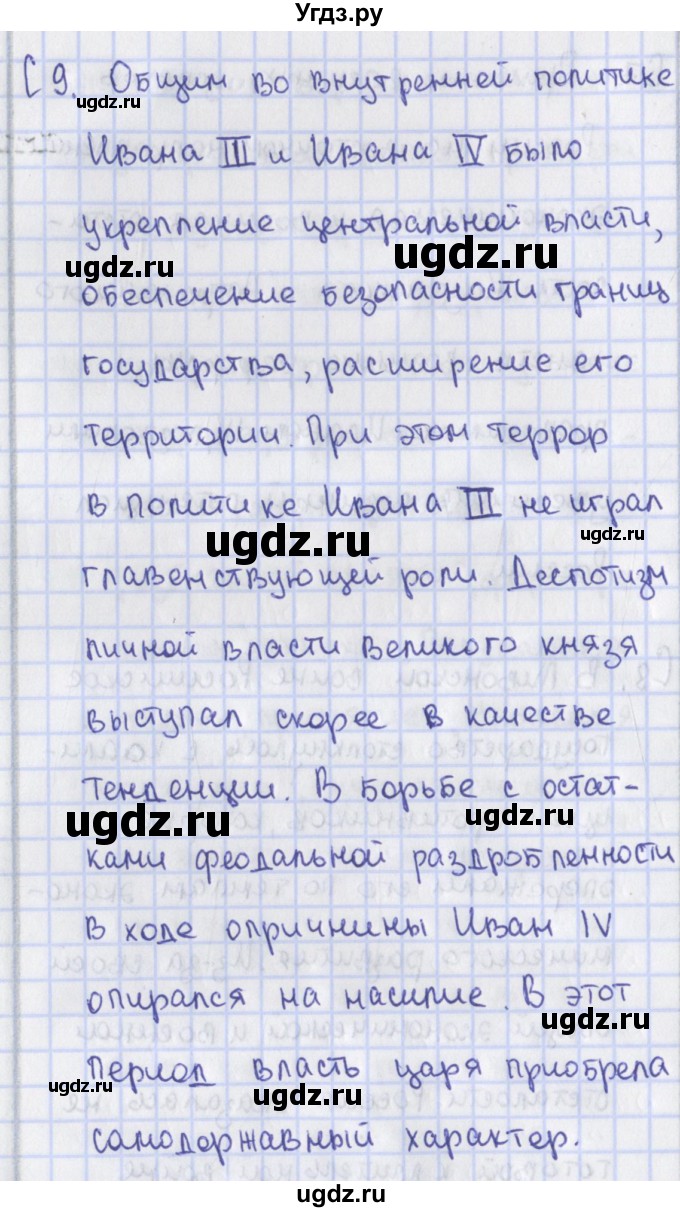 Угдз.ру
С 9. Общим во внутренней политике
ugdz.ru
Ивана III и Ивана IV было
укрепление центральной власти,
ugdz.ru ugdz.ru
обеспечение безопасности границ
государства, расширение его
территории. При этом террор
в политике Ивана III не играл
ugdz.ru
главенствующей роли. Деспотизм
личной власти великого князя
выступал скорее в качестве
тенденции. В борьбе с остат-
ugdz.ru ugdz.ru
ками феодальной раздробленности
В ходе опричнины Иван IV
опирался на насилие. В этот
ugdz.ru
период власть царя приобрела
ugdz.ru
самодержавный характер.
ugdz.ru